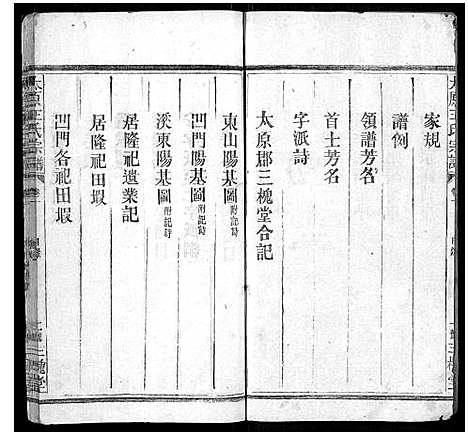 太原王氏宗譜
家規
譜例
領譜芳名
首士芳名
字派詩
太原郡三槐堂合記
東山陽基圖 附記詩
凹門陽基圖 附記詩
溪東陽基圖 附記詩
居隆祀遺業記
居隆祀田塅
凹門各祀田塅
太原王氏宗譜
三槐堂